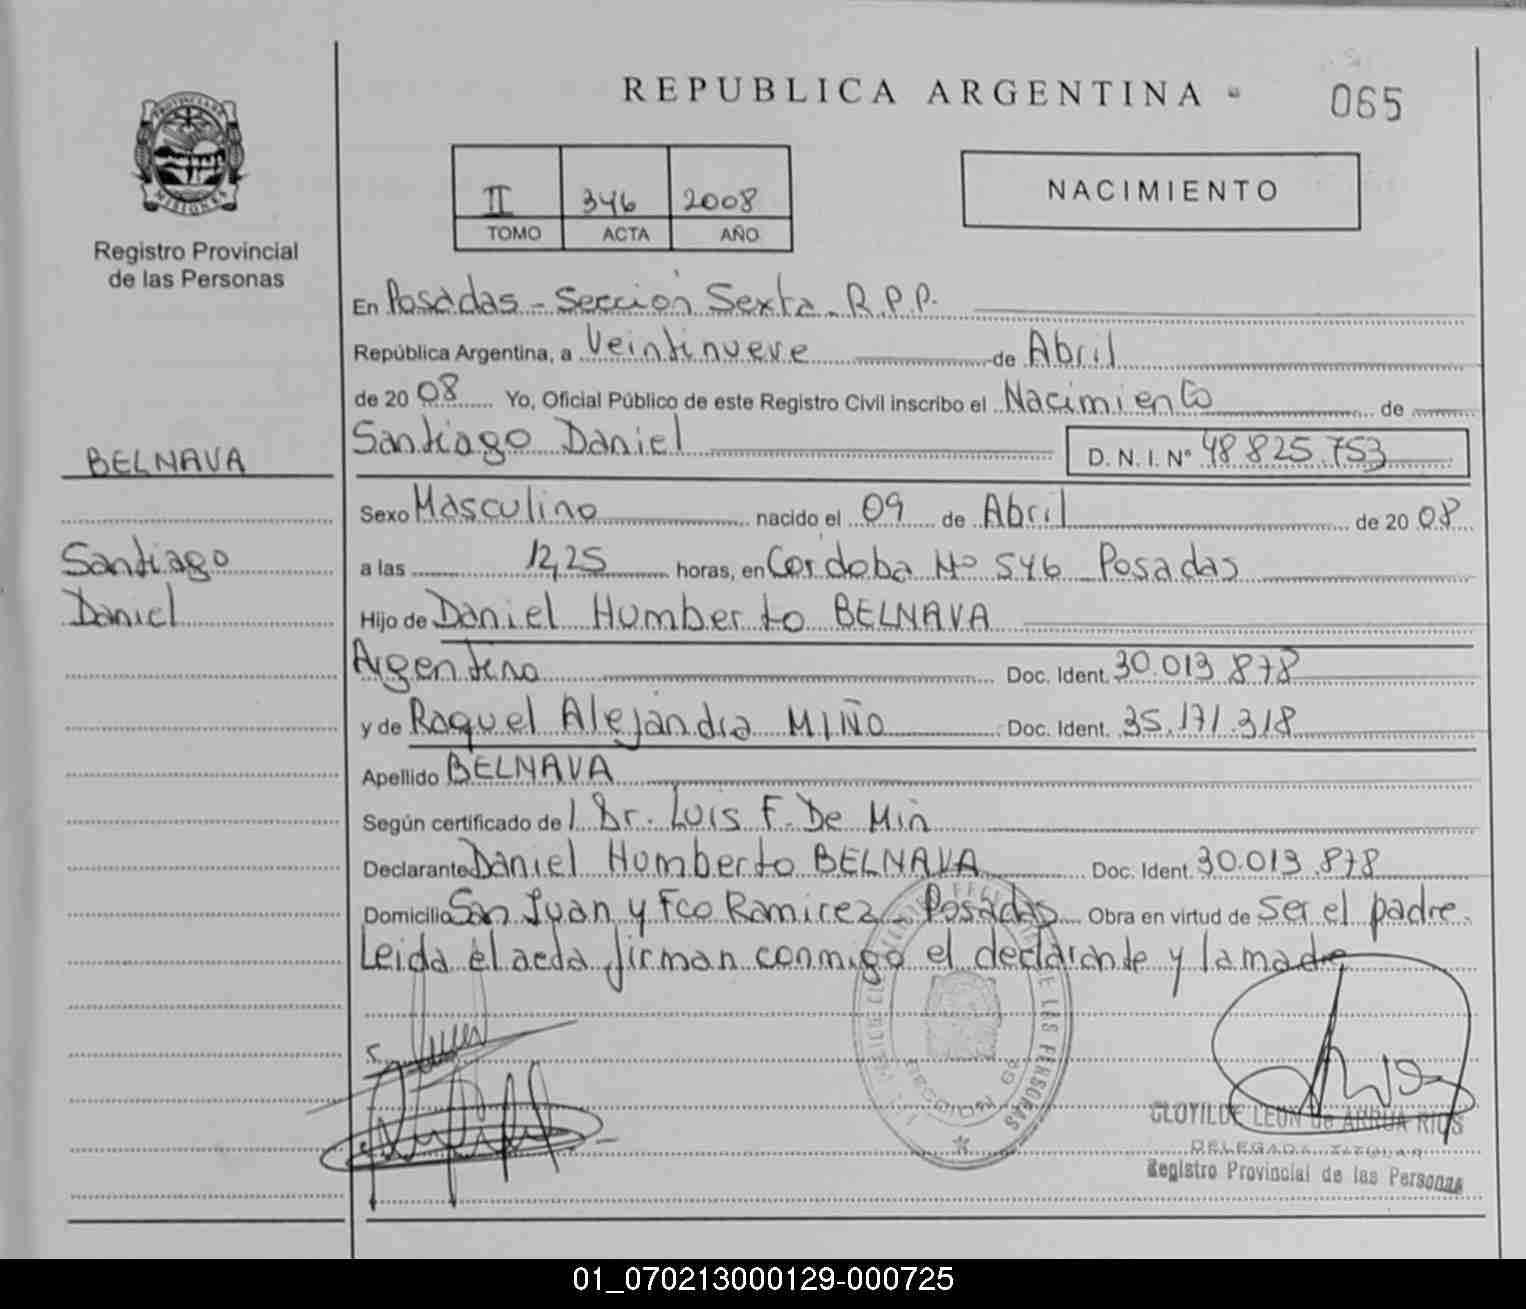 REPUBLICA ARGENTINA
065
PROVINCIA DE
MISIONES
Registro Provincial
de las Personas
II 346 2008
TOMO ACTA AÑO
NACIMIENTO
En Posadas - Sección Sexta. R.P.P.
República Argentina, a Veintinueve de Abril
de 20 08 Yo, Oficial Público de este Registro Civil inscribo el Nacimiento de
Santiago Daniel
D. N. I. Nº 48.825.753
BELNAVA
Santiago
Daniel
Sexo Masculino nacido el 09 de Abril de 20 08
a las 12,25 horas, en Córdoba Nº 546 Posadas
Hijo de Daniel Humberto BELNAVA
Argentino Doc. Ident. 30.013.878
y de Raquel Alejandra MIÑO Doc. Ident. 35.171.318
Apellido BELNAVA
Según certificado de l Dr. Luis F. De Min
Declarante Daniel Humberto BELNAVA Doc. Ident. 30.013.878
Domicilio San Juan y Fco Ramirez - Posadas Obra en virtud de ser el padre.
Leida el acta firman conmigo el declarante y la madre
DE LAS PERSONAS
SECCION 6ª
CLOTILDE LEON de ARRUA RIOS
DELEGADA TITULAR
Registro Provincial de las Personas
01_070213000129-000725